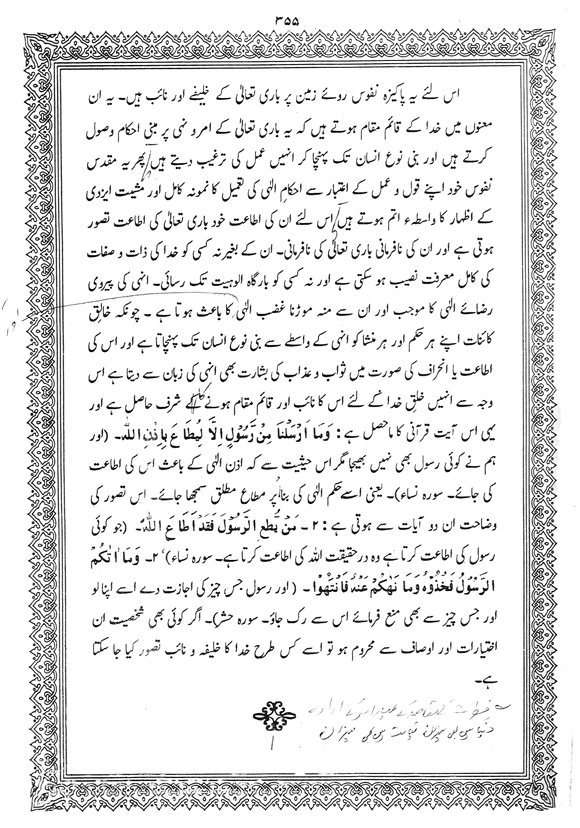 ۳۵۵
اس لئے یہ پاکیزہ نفوس روئے زمین پر باری تعالیٰ کے خلیفے اور نائب ہیں۔ یہ ان
معنوں میں خدا کے قائم مقام ہوتے ہیں کہ یہ باری تعالیٰ کے امر و نہی پر مبنی احکام وصول
کرتے ہیں اور بنی نوع انسان تک پہنچا کر انہیں عمل کی ترغیب دیتے ہیں پھر یہ مقدس
نفوس خود اپنے قول و عمل کے اعتبار سے احکام الٰہی کی تعمیل کا نمونہ کامل اور مشیت ایزدی
کے اظہار کا واسطہء اتم ہوتے ہیں اس لئے ان کی اطاعت خود باری تعالیٰ کی اطاعت تصور
ہوتی ہے اور ان کی نافرمانی باری تعالیٰ کی نافرمانی۔ ان کے بغیر نہ کسی کو خدا کی ذات و صفات
کی کامل معرفت نصیب ہو سکتی ہے اور نہ کسی کو بارگاہ الوہیت تک رسائی۔ انہی کی پیروی
رضائے الٰہی کا موجب اور ان سے منہ موڑنا غضب الٰہی کا باعث ہوتا ہے ۔ چونکہ خالق
کائنات اپنے ہر حکم اور ہر منشا کو انہی کے واسطے سے بنی نوع انسان تک پہنچاتا ہے اور اس کی
اطاعت یا انحراف کی صورت میں ثواب و عذاب کی بشارت بھی انہی کی زبان سے دیتا ہے اس
وجہ سے انہیں خلق خدا کے لئے اس کا نائب اور قائم مقام ہونے کا شرف حاصل ہے اور
یہی اس آیت قرآنی کا ماحصل ہے: وَمَا اَرْسَلْنَا مِنْ رَّسُوْلٍ اِلَّا لِيُطَاعَ بِاِذْنِ اللهِ۔ (اور
ہم نے کوئی رسول بھی نہیں بھیجا مگر اس حیثیت سے کہ اذن الٰہی کے باعث اس کی اطاعت
کی جائے۔ سورہ نساء)۔ یعنی اسے حکم الٰہی کی بنا پر مطاع مطلق سمجھا جائے۔ اس تصور کی
وضاحت ان دو آیات سے ہوتی ہے: ۲ - مَنْ يُّطِعِ الرَّسُوْلَ فَقَدْ اَطَاعَ اللهَ۔ (جو کوئی
رسول کی اطاعت کرتا ہے وہ درحقیقت اللہ کی اطاعت کرتا ہے۔ سورہ نساء)، ۲۔ وَمَا اٰتٰكُمُ
الرَّسُوْلُ فَخُذُوْهُ وَمَا نَهٰكُمْ عَنْهُ فَانْتَهُوْا ۔ (اور رسول جس چیز کی اجازت دے اسے اپنا لو
اور جس چیز سے بھی منع فرمائے اس سے رک جاؤ۔ سورہ حشر)۔ اگر کوئی بھی شخصیت ان
اختیارات اور اوصاف سے محروم ہو تو اسے کس طرح خدا کا خلیفہ و نائب تصور کیا جا سکتا
ہے۔